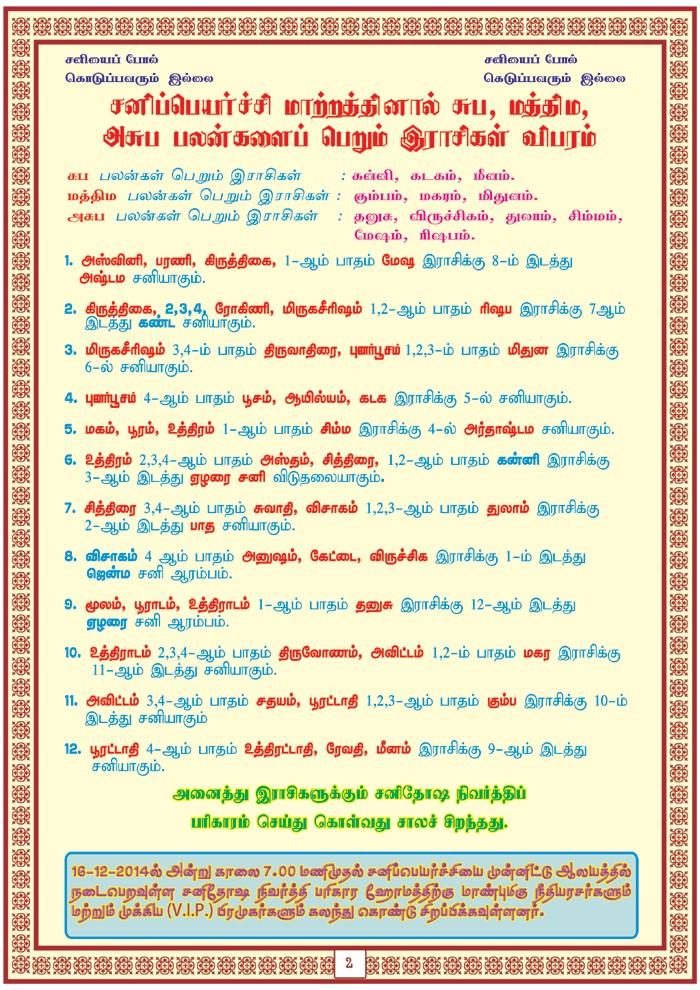 சனியைப் போல்
கொடுப்பவரும் இல்லை
சனியைப் போல்
கெடுப்பவரும் இல்லை
சனிப்பெயர்ச்சி மாற்றத்தினால் சுப, மத்திம,
அசுப பலன்களைப் பெறும் இராசிகள் விபரம்
சுப பலன்கள் பெறும் இராசிகள் : கன்னி, கடகம், மீனம்.
மத்திம பலன்கள் பெறும் இராசிகள் : கும்பம், மகரம், மிதுனம்.
அசுப பலன்கள் பெறும் இராசிகள் : தனுசு, விருச்சிகம், துலாம், சிம்மம்,
மேஷம், ரிஷபம்.
1. அஸ்வினி, பரணி, கிருத்திகை, 1-ஆம் பாதம் மேஷ இராசிக்கு 8-ம் இடத்து
அஷ்டம சனியாகும்.
2. கிருத்திகை, 2,3,4, ரோகிணி, மிருகசீரிஷம் 1,2-ஆம் பாதம் ரிஷப இராசிக்கு 7ஆம்
இடத்து கண்ட சனியாகும்.
3. மிருகசீரிஷம் 3,4-ம் பாதம் திருவாதிரை, புனர்பூசம் 1,2,3-ம் பாதம் மிதுன இராசிக்கு
6-ல் சனியாகும்.
4. புனர்பூசம் 4-ஆம் பாதம் பூசம், ஆயில்யம், கடக இராசிக்கு 5-ல் சனியாகும்.
5. மகம், பூரம், உத்திரம் 1-ஆம் பாதம் சிம்ம இராசிக்கு 4-ல் அர்தாஷ்டம சனியாகும்.
6. உத்திரம் 2,3,4-ஆம் பாதம் அஸ்தம், சித்திரை, 1,2-ஆம் பாதம் கன்னி இராசிக்கு
3-ஆம் இடத்து ஏழரை சனி விடுதலையாகும்.
7. சித்திரை 3,4-ஆம் பாதம் சுவாதி, விசாகம் 1,2,3-ஆம் பாதம் துலாம் இராசிக்கு
2-ஆம் இடத்து பாத சனியாகும்.
8. விசாகம் 4 ஆம் பாதம் அனுஷம், கேட்டை, விருச்சிக இராசிக்கு 1-ம் இடத்து
ஜென்ம சனி ஆரம்பம்.
9. மூலம், பூராடம், உத்திராடம் 1-ஆம் பாதம் தனுசு இராசிக்கு 12-ஆம் இடத்து
ஏழரை சனி ஆரம்பம்.
10. உத்திராடம் 2,3,4-ஆம் பாதம் திருவோணம், அவிட்டம் 1,2-ம் பாதம் மகர இராசிக்கு
11-ஆம் இடத்து சனியாகும்.
11. அவிட்டம் 3,4-ஆம் பாதம் சதயம், பூரட்டாதி 1,2,3-ஆம் பாதம் கும்ப இராசிக்கு 10-ம்
இடத்து சனியாகும்
12. பூரட்டாதி 4-ஆம் பாதம் உத்திரட்டாதி, ரேவதி, மீனம் இராசிக்கு 9-ஆம் இடத்து
சனியாகும்.
அனைத்து இராசிகளுக்கும் சனிதோஷ நிவர்த்திப்
பரிகாரம் செய்து கொள்வது சாலச் சிறந்தது.
16-12-2014ல் அன்று காலை 7.00 மணிமுதல் சனிப்பெயர்ச்சியை முன்னிட்டு ஆலயத்தில்
நடைபெறவுள்ள சனிதோஷ நிவர்த்தி பரிகார ஹோமத்திற்கு மாண்புமிகு நீதியரசர்களும்
மற்றும் முக்கிய (V.I.P.) பிரமுகர்களும் கலந்து கொண்டு சிறப்பிக்கவுள்ளனர்.
2